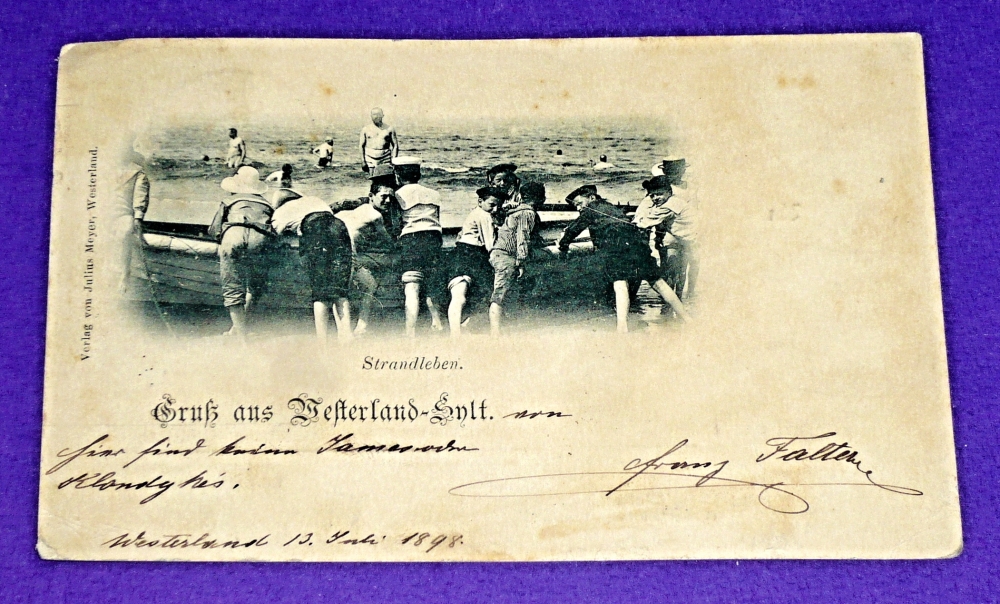 Verlag von Julius Meyer, Westerland.
Strandleben.
Gruß aus Westerland-Sylt. von
hier sind keine James oder
Klondykés.
Franz Falten
Westerland 13. Juli 1898.